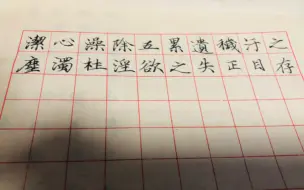 潔心澡除五累遺穢汙之
塵濁杜淫欲之失正目存